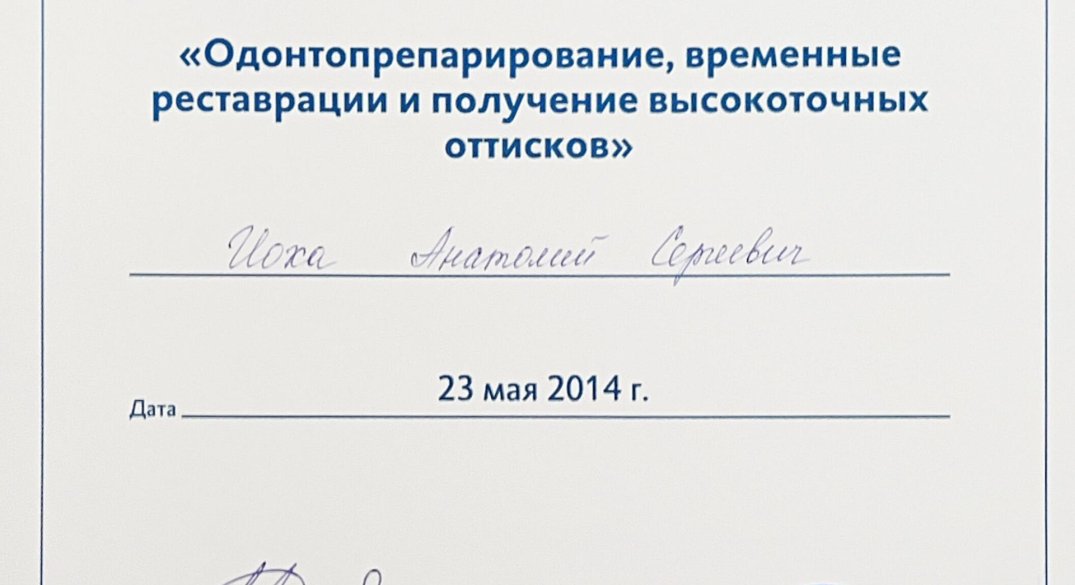 «Одонтопрепарирование, временные
реставрации и получение высокоточных
оттисков»
Иоха Анатолий Сергеевич
23 мая 2014 г.
Дата